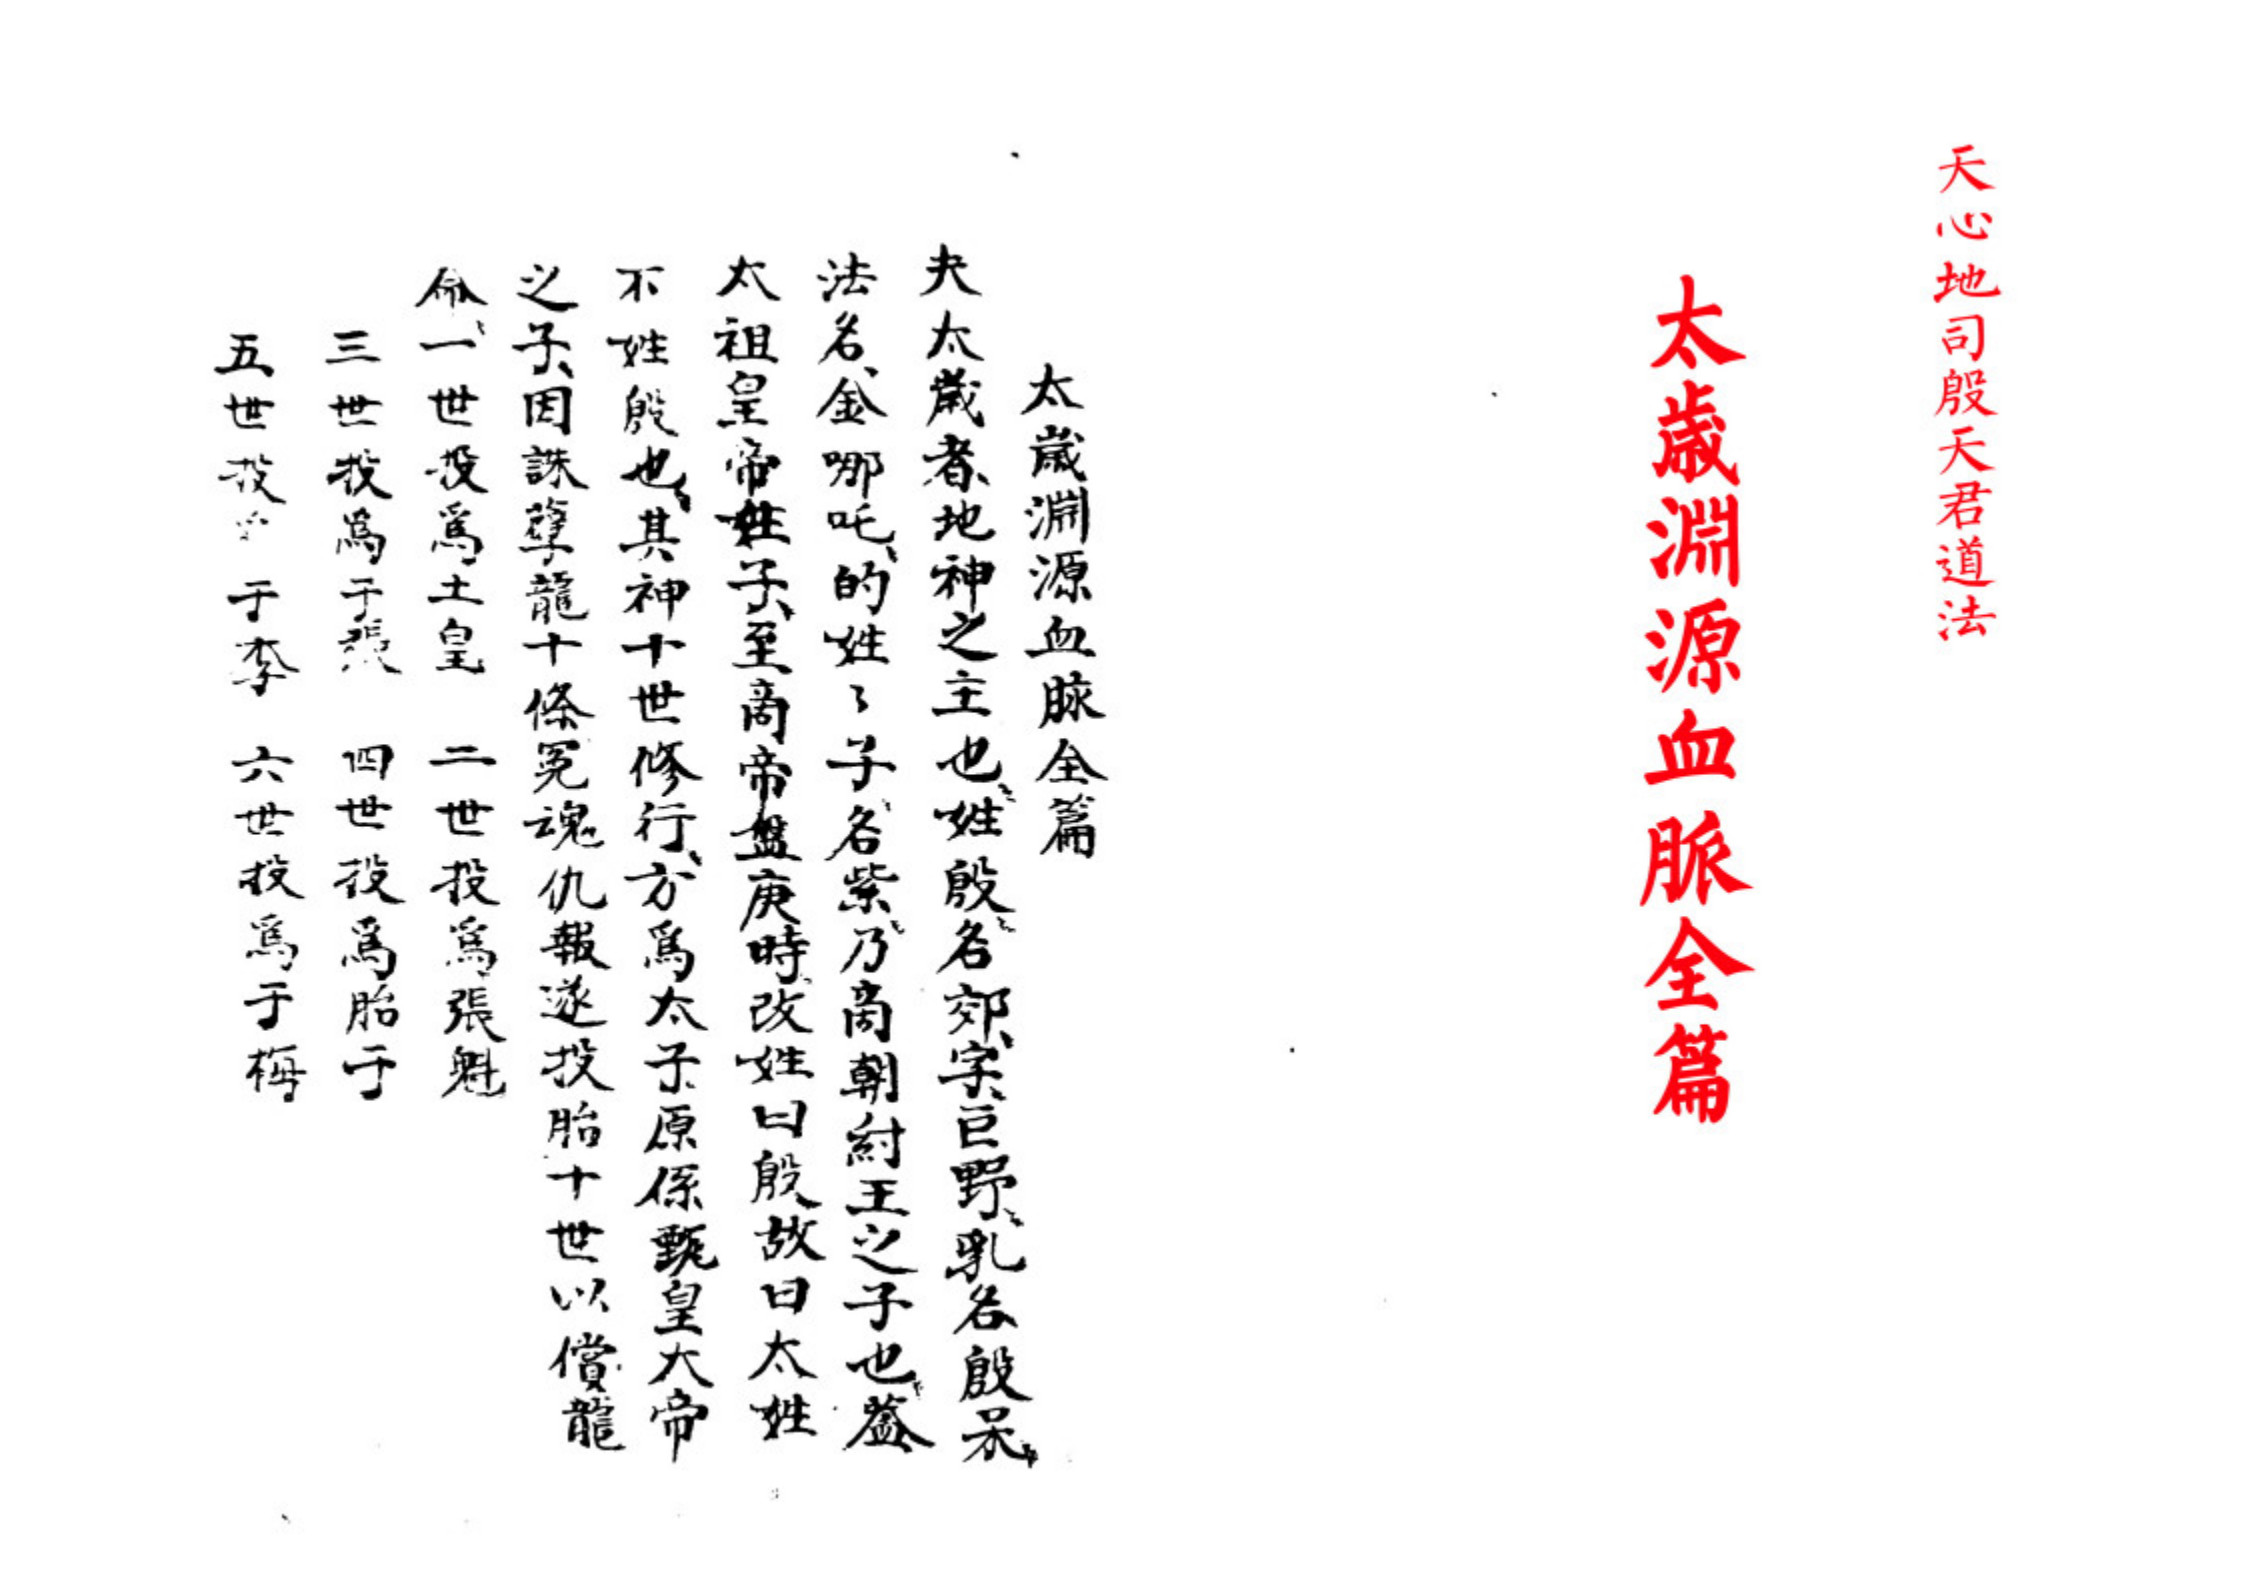 天心地司殷天君道法
太歲淵源血脈全篇
太歲淵源血脉全篇
夫太歲者地神之主也姓殷名郊字巨野乳名殷呆
法名金哪吒的姓〻子名紫乃商朝紂王之子也蓋
太祖皇帝姓子至商帝盤庚時改姓曰殷故曰太姓
不姓殷也其神十世修行方為太子原係甄皇大帝
之子因誅孽龍十條冤魂仇報遂投胎十世以償龍
命一世投為土皇 二世投為張魁
三世投為于張 四世投為胎于
五世投 于李 六世投為于梅